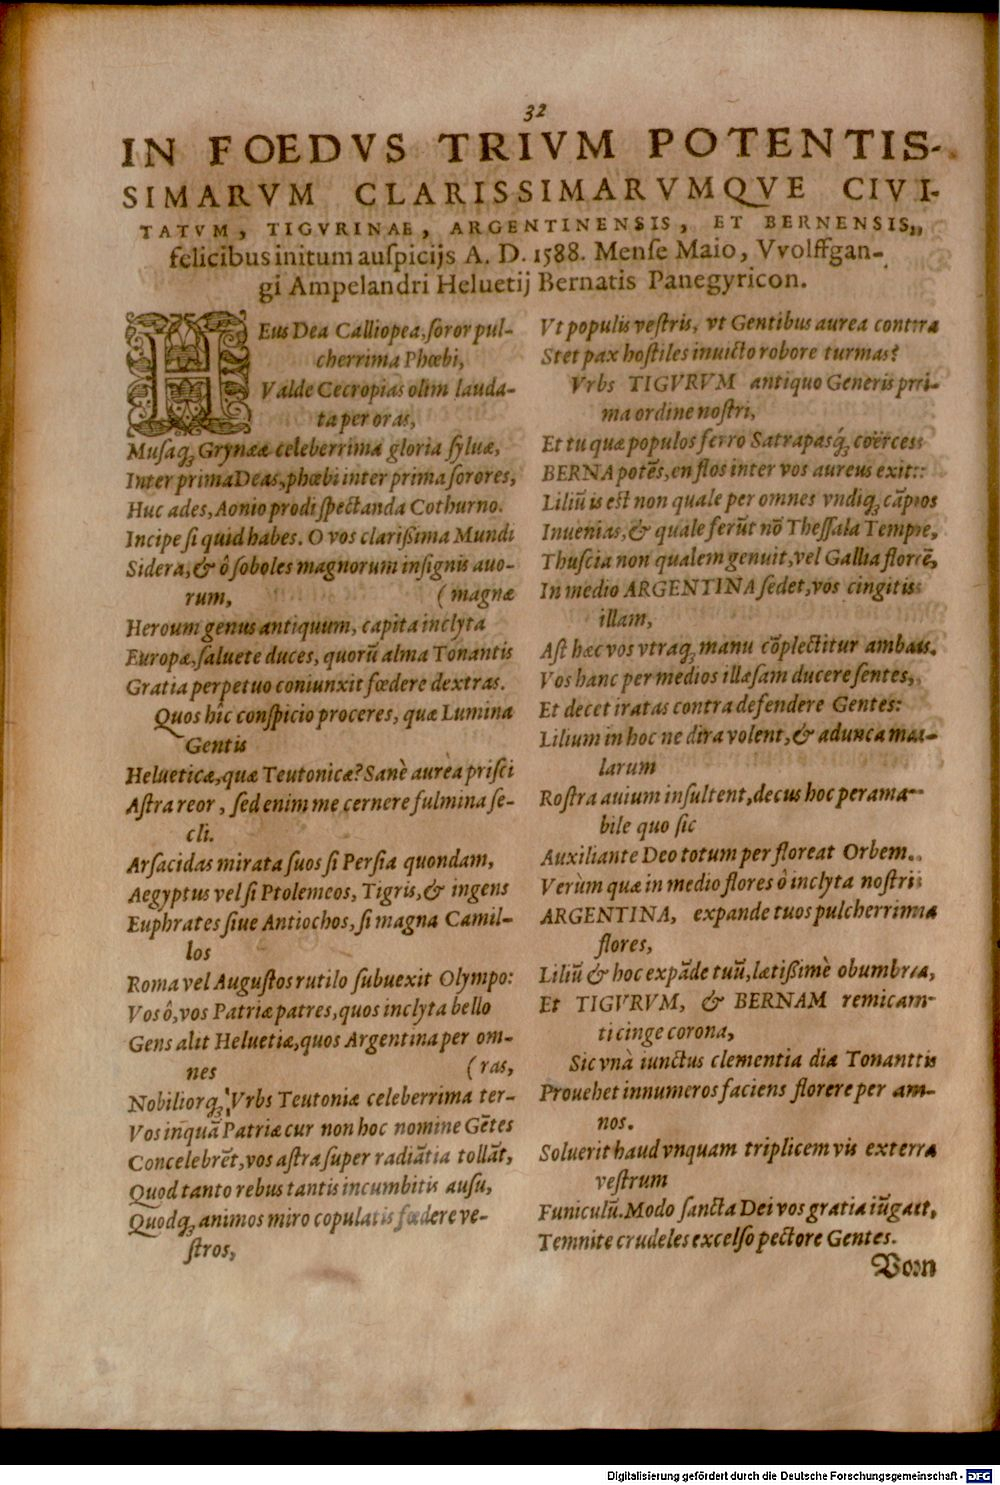 32
IN FOEDVS TRIVM POTENTIS-
SIMARVM CLARISSIMARVMQVE CIVI-
TATVM, TIGVRINAE, ARGENTINENSIS, ET BERNENSIS,
felicibus initum auſpicijs A. D. 1588. Menſe Maio, Vvolffgan-
gi Ampelandri Heluetij Bernatis Panegyricon.
HEus Dea Calliopea, ſoror pul-
cherrima Phœbi,
Valde Cecropias olim lauda-
ta per oras,
Muſaq́ꝫ Grynææ celeberrima gloria ſyluæ,
Inter prima Deas, phœbi inter prima ſorores,
Huc ades, Aonio prodi ſpectanda Cothurno.
Incipe ſi quid habes. O vos clarißima Mundi
Sidera, & ô ſoboles magnorum inſignis auo-
rum, (magnæ
Heroum genus antiquum, capita inclyta
Europæ, ſaluete duces, quorũ alma Tonantis
Gratia perpetuo coniunxit fœdere dextras.
Quos hîc conſpicio proceres, quæ Lumina
Gentis
Helueticæ, quæ Teutonicæ? Sanè aurea priſci
Aſtra reor, ſed enim me cernere fulmina ſe-
cli.
Arſacidas mirata ſuos ſi Perſia quondam,
Aegyptus vel ſi Ptolemeos, Tigris, & ingens
Euphrates ſiue Antiochos, ſi magna Camil-
los
Roma vel Auguſtos rutilo ſubuexit Olympo:
Vos ô, vos Patriæ patres, quos inclyta bello
Gens alit Heluetiæ, quos Argentina per om-
nes (ras,
Nobiliorq́ꝫ Vrbs Teutoniæ celeberrima ter-
Vos inquã Patriæ cur non hoc nomine Gẽtes
Concelebrẽt, vos aſtra ſuper radiãtia tollãt,
Quod tanto rebus tantis incumbitis auſu,
Quodq́ꝫ animos miro copulatis fœdere ve-
ſtros,
Vt populis veſtris, vt Gentibus aurea contra
Stet pax hoſtiles inuicto robore turmas?
Vrbs TIGVRVM antiquo Generis pri-
ma ordine noſtri,
Et tu quæ populos ferro Satrapasq́ꝫ coërces
BERNA potẽs, en flos inter vos aureus exit:
Liliũ is eſt non quale per omnes vndiq́ꝫ cãpos
Inuenias, & quale ferũt nõ Theſſala Tempe,
Thuſcia non qualem genuit, vel Gallia florẽ,
In medio ARGENTINA ſedet, vos cingitis
illam,
Aſt hæc vos vtraq́ꝫ manu cõplectitur ambas.
Vos hanc per medios illæſam ducere ſentes,
Et decet iratas contra defendere Gentes:
Lilium in hoc ne dira volent, & adunca ma-
larum
Roſtra auium inſultent, decus hoc perama-
bile quo ſic
Auxiliante Deo totum per floreat Orbem.
Verùm quæ in medio flores ô inclyta noſtri
ARGENTINA, expande tuos pulcherrima
flores,
Liliũ & hoc expãde tuũ, lætißimè obumbra,
Et TIGVRVM, & BERNAM remicam-
ti cinge corona,
Sic vnà iunctus clementia dia Tonantis
Prouehet innumeros faciens florere per an-
nos.
Soluerit haud vnquam triplicem vis exterra
veſtrum
Funiculũ. Modo ſancta Dei vos gratia iũgat,
Temnite crudeles excelſo pectore Gentes.
Vom
Digitalisierung gefördert durch die Deutsche Forschungsgemeinschaft - DFG